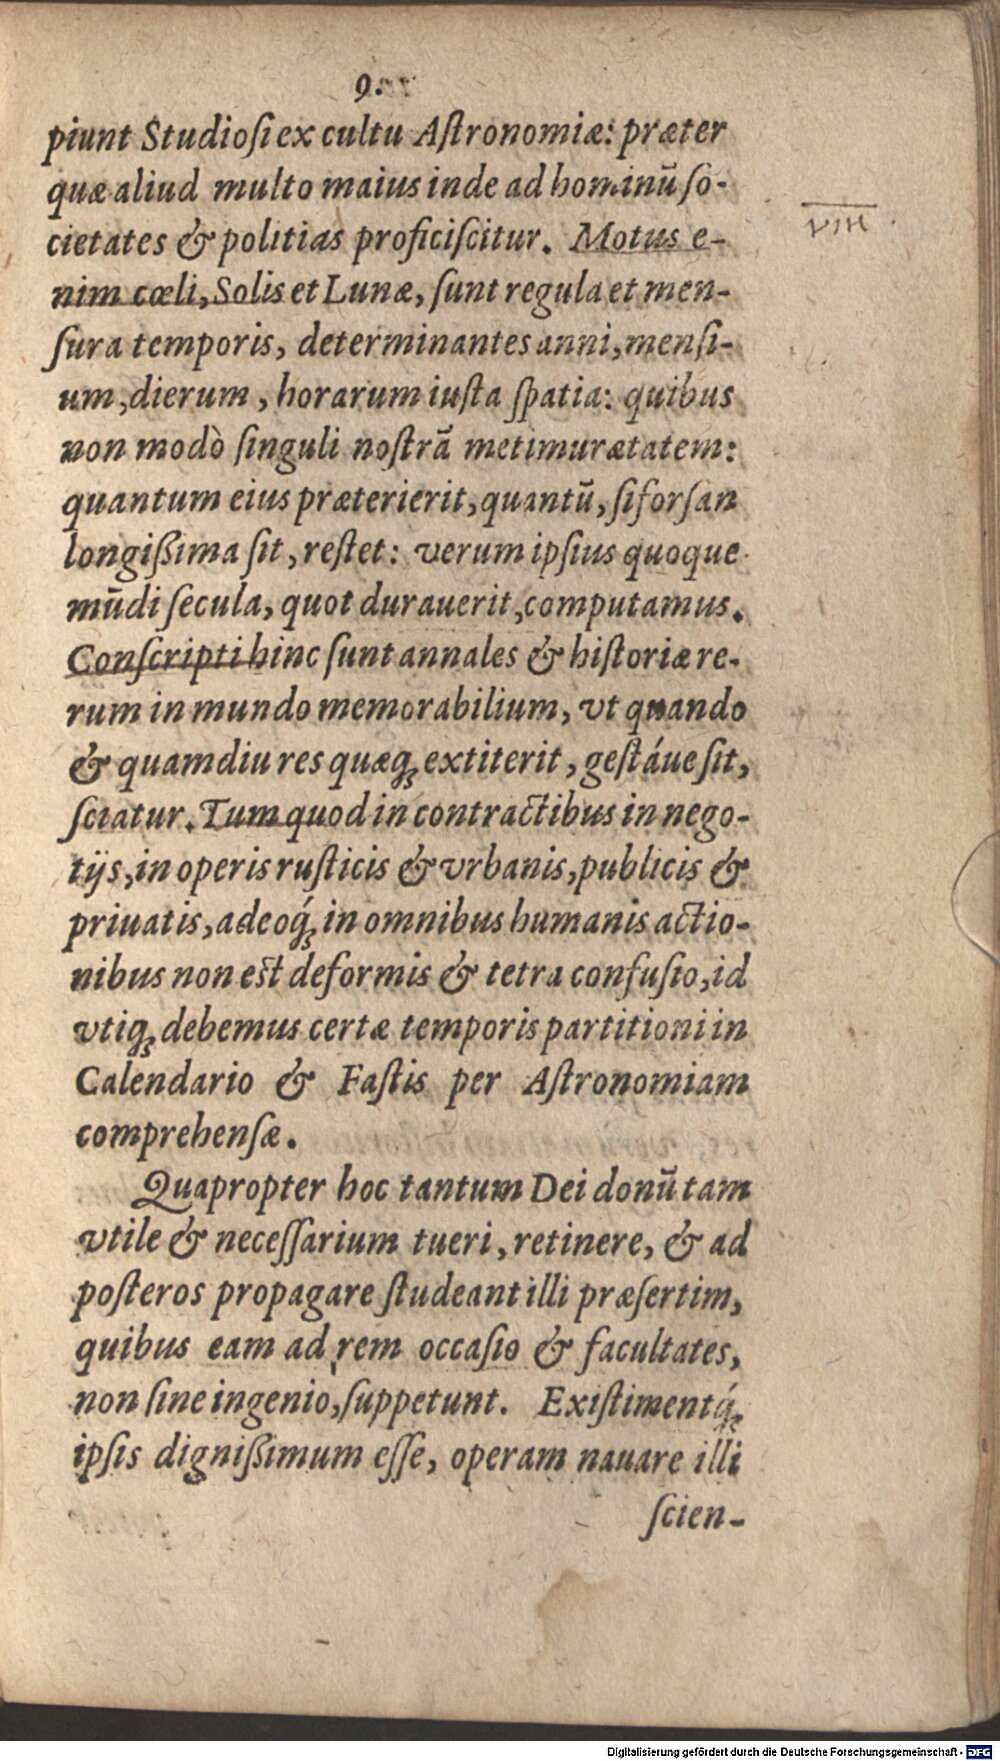 9.
piunt Studioſi ex cultu Aſtronomiæ: præter
quæ aliud multo maius inde ad hominũ ſo-
cietates & politias proficiſcitur. Motus e-
nim cœli, Solis et Lunæ, ſunt regula et men-
ſura temporis, determinantes anni, menſi-
um, dierum, horarum iuſta ſpatia: quibus
non modò ſinguli noſtrã metimur ætatem:
quantum eius præterierit, quantũ, ſi forſan
longißima ſit, reſtet: verum ipſius quoque
mũdi ſecula, quot durauerit, computamus.
Conſcripti hinc ſunt annales & hiſtoriæ re-
rum in mundo memorabilium, vt quando
& quamdiu res quæq; extiterit, geſtáue ſit,
ſciatur. Tum quod in contractibus in nego-
tijs, in operis ruſticis & vrbanis, publicis &
priuatis, adeoq́; in omnibus humanis actio-
nibus non eſt deformis & tetra confuſio, id
vtiq; debemus certæ temporis partitioni in
Calendario & Faſtis per Aſtronomiam
comprehenſæ.
Quapropter hoc tantum Dei donũ tam
vtile & neceſſarium tueri, retinere, & ad
poſteros propagare ſtudeant illi præſertim,
quibus eam ad rem occaſio & facultates,
non ſine ingenio, ſuppetunt. Exiſtimentq́;
ipſis digniſſimum eſſe, operam nauare illi
ſcien-
VIII
Digitalisierung gefördert durch die Deutsche Forschungsgemeinschaft - DFG